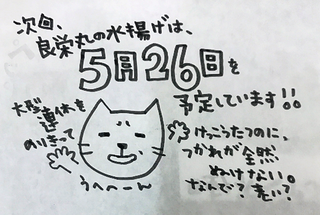 次回、
良栄丸の水揚げは、
5月26日を
予定しています!!
大型
連休を
のりきって
けっこうたつのに、
つかれが全然
ぬけない。
なんで?老い?
うへへーん